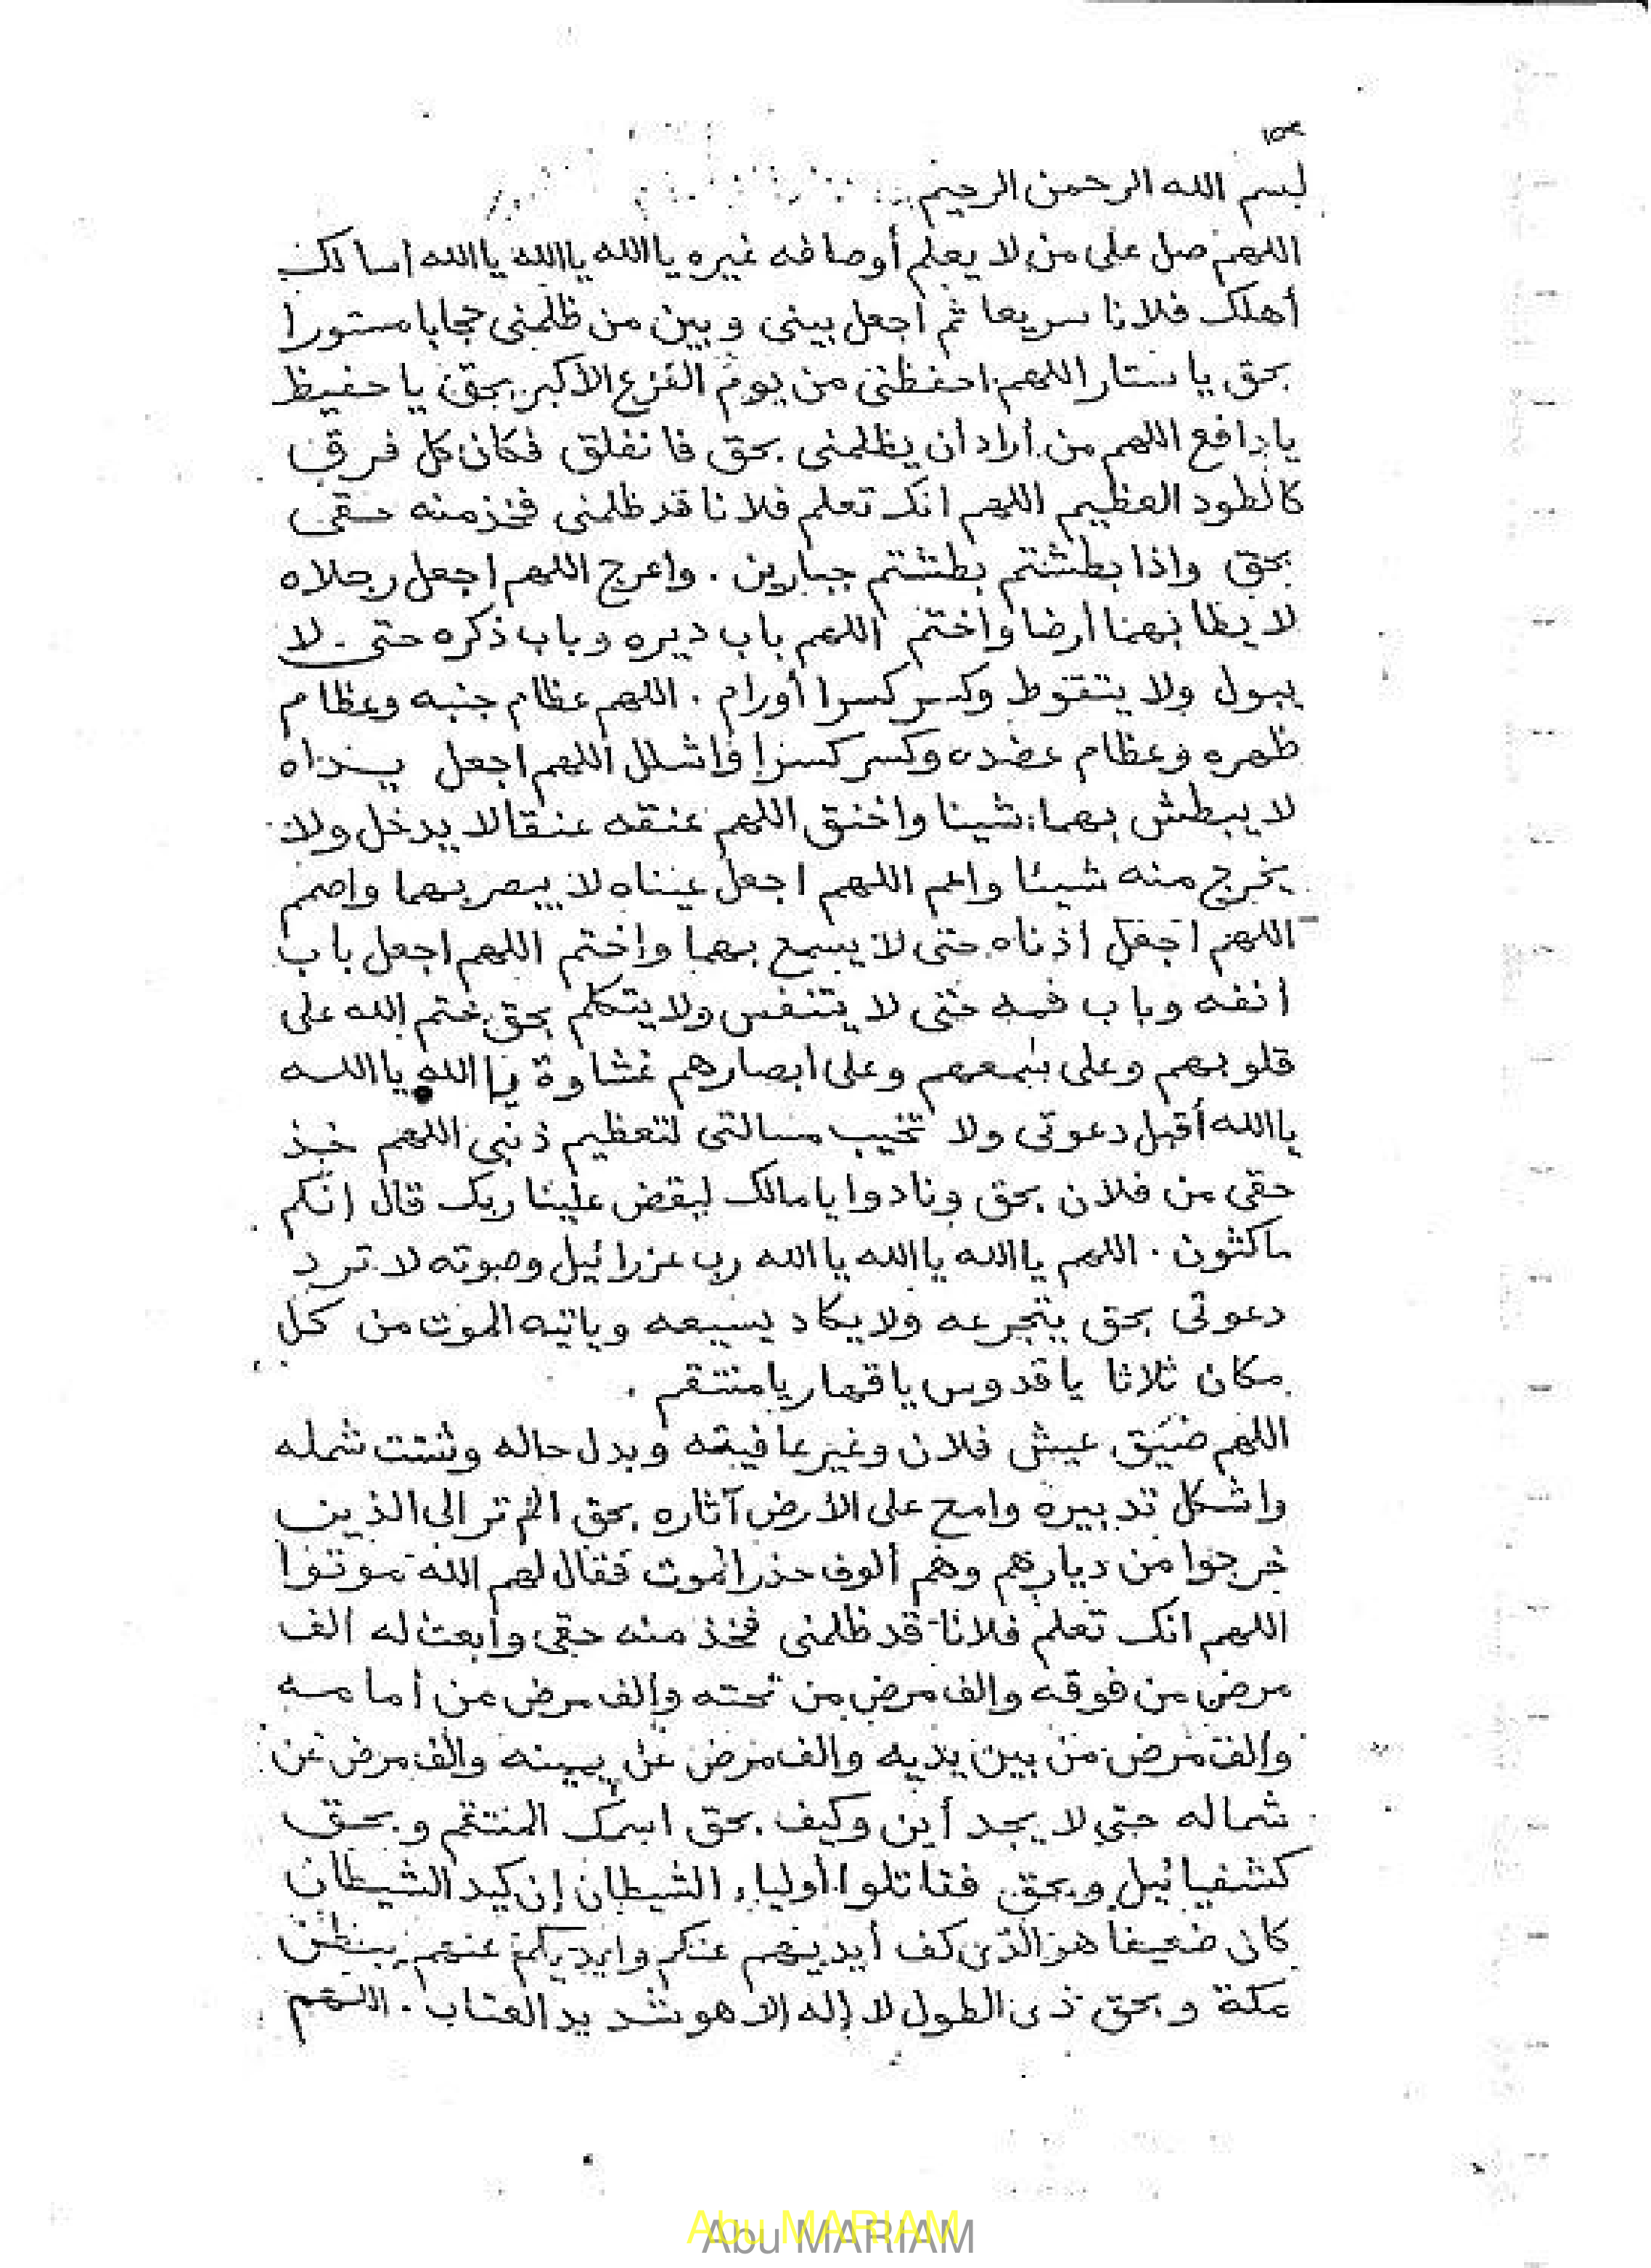 ١٥٣
بسم الله الرحمن الرحيم
اللهم صل على من لا يعلم أوصافه غيره يا الله يا الله يا الله اسا لك
أهلك فلانا سريعا ثم اجعل بينى وبين من ظلمنى حجابا مستورا
بحق يا ستار اللهم احفظنى من يوم الفزع الأكبر بحق يا حفيظ
يا دافع اللهم من أراد أن يظلمنى بحق فانفلق فكان كل فرق
كالطود العظيم اللهم انك تعلم فلانا قد ظلمنى فخذ منه حقى
بحق واذا بطشتم بطشتم جبارين . واعرج اللهم اجعل رجلاه
لا يطا بهما أرضا واختم اللهم باب ديره وباب ذكره حتى لا
يبول ولا يتقوط وكسر كسرا أورام . اللهم عظام جنبه وعظام
ظهره وعظام عضده وكسر كسرا واشلل اللهم اجعل يداه
لا يبطش بهما شيئا واخنق اللهم عنقه عنقا لا يدخل ولا
يخرج منه شيئا واعم اللهم اجعل عيناه لا يبصر بهما واصم
اللهم اجعل اذناه حتى لا يسمع بهما واختم اللهم اجعل باب
أنفه وباب فمه حتى لا يتنفس ولا يتكلم بحق ختم الله على
قلوبهم وعلى سمعهم وعلى ابصارهم غشاوة يا الله يا الله
يا الله أقبل دعوتى ولا تخيب مسالتى لتعظيم ذنبى اللهم خذ
حقى من فلان بحق ونادوا يا مالك ليقض علينا ربك قال انكم
ماكثون . اللهم يا الله يا الله يا الله رب عزرائيل وصوته لا ترد
دعوتى بحق يتجرعه ولا يكاد يسيعه وياتيه الموت من كل
مكان ثلاثا يا قدوس يا قهار يا منتقم .
اللهم ضيق عيش فلان وغير عافيته وبدل حاله وشتت شمله
واشكل تدبيره وامح على الأرض آثاره بحق الم تر الى الذين
خرجوا من ديارهم وهم ألوف حذر الموت فقال لهم الله موتوا
اللهم انك تعلم فلانا قد ظلمنى فخذ منه حقى وابعث له الف
مرض من فوقه والف مرض من تحته والف مرض من أمامه
والف مرض من بين يديه والف مرض عن يمينه والف مرض عن
شماله حتى لا يجد أين وكيف بحق اسمك المنتقم وبحق
كشفيائيل وبحق فقاتلوا أولياء الشيطان إن كيد الشيطان
كان ضعيفا هو الذى كف أيديهم عنكم وايديكم عنهم ببطن
مكة وبحق ذى الطول لا إله إلا هو شديد العقاب . اللهم
Abu MARIAM